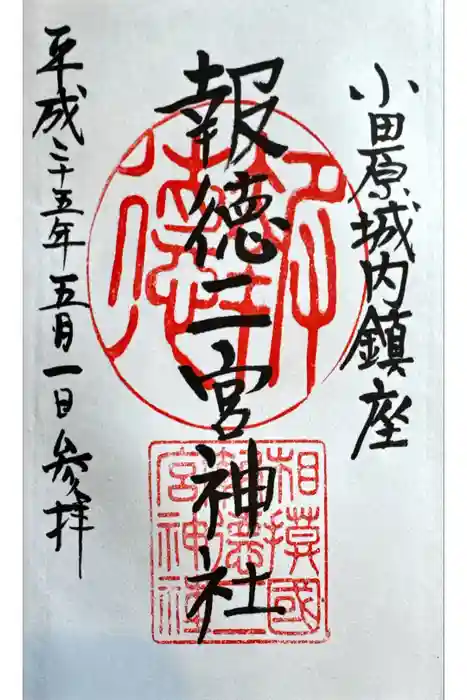 小田原城内鎮座
報徳二宮神社
平成二十五年五月一日参拝
報徳
相摸國
報徳二
宮神社